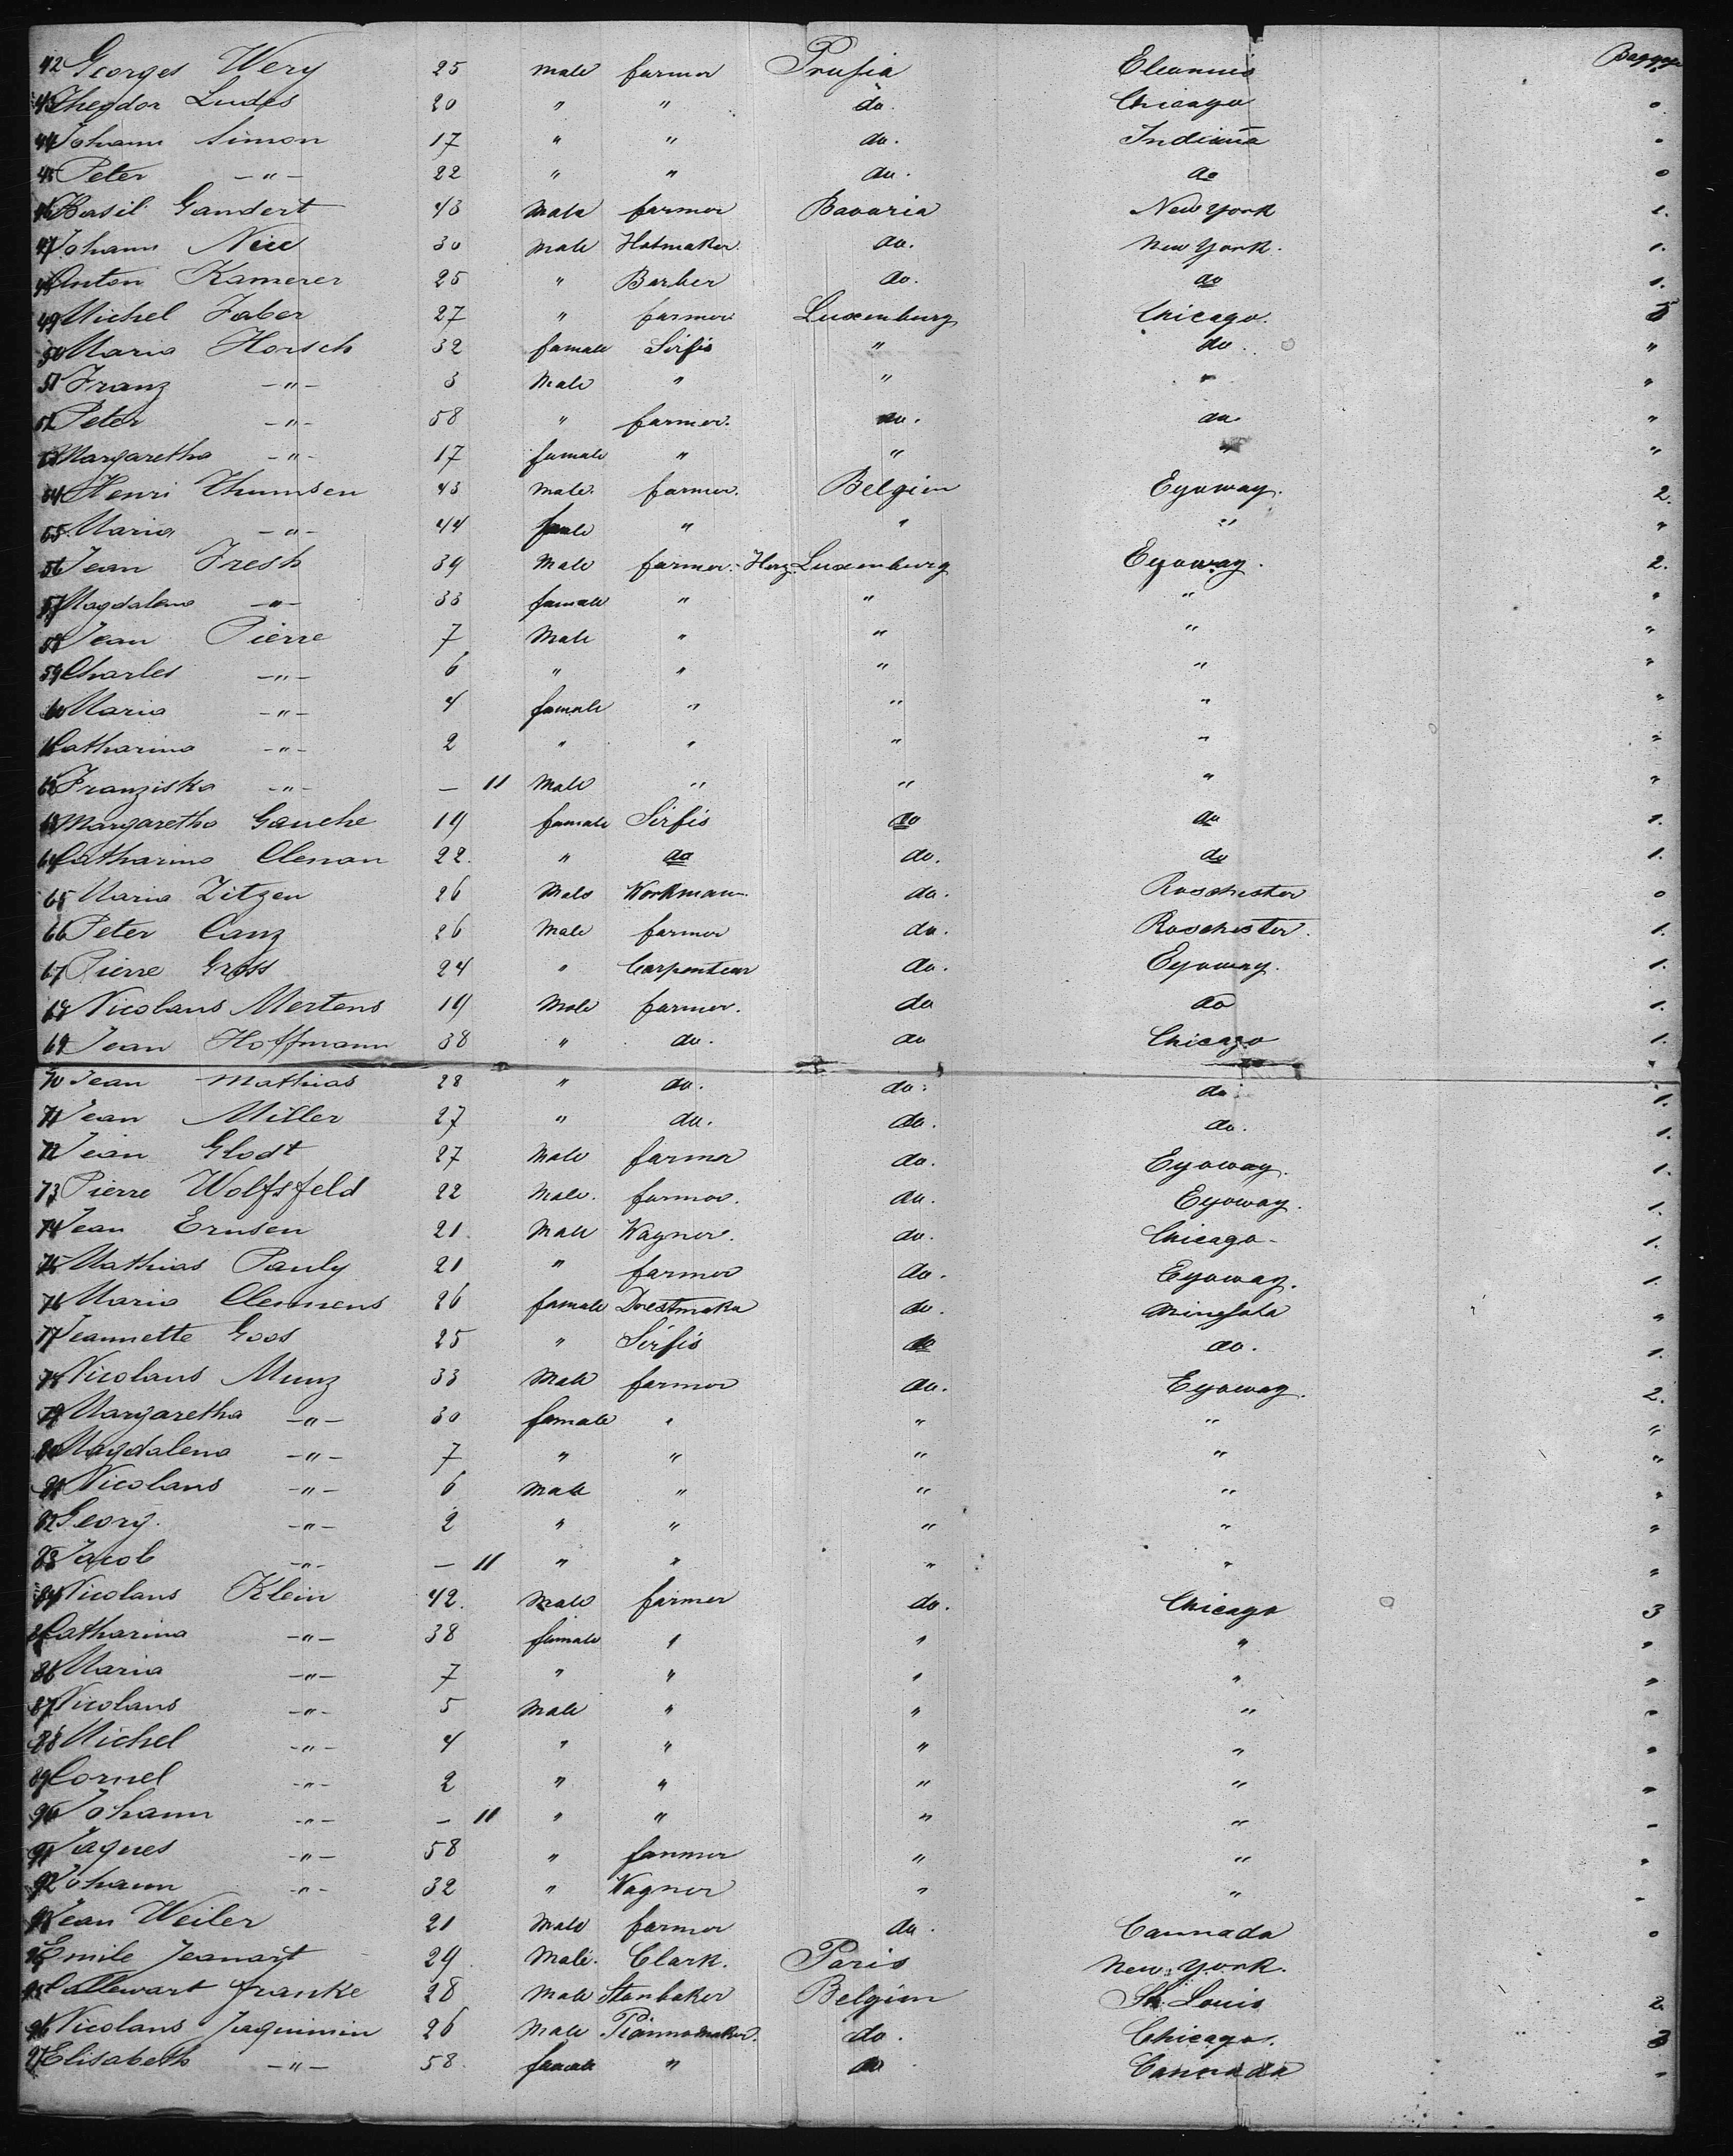 Baggage
42 Georges Wery 25 male farmer Prusia
43 Theodor Ludes 20 " " do. Chicago 0
44 Johann Simon 17 " " do. Indiana 0
45 Peter —"— 22 " " do. do 0
46 Basil Gandert 43 Male farmer Bavaria New York 1.
47 Johann 30 Male Hatmaker do. New York. 1.
48 Anton Kamerer 25 " Barber do. do 1.
49 Michel Faber 27 " farmer Luxenburg Chicago.
50 Maria Horsch 32 famale Sirfis " do "
51 Franz —"— 3 Male " " " "
52 Peter —"— 58 " farmer. do. do "
53 Margaretha —"— 17 famale " " " "
54 Henri Thumsen 43 male. farmer. Belgien Eyoway. 2.
55 Maria —"— 44 " " " "
56 Jean Fresh 39 Male farmer. Herz. Luxemburg Eyoway. 2.
57 Magdalena —"— 33 famale " " " "
58 Jean Pierre 7 Male " " " "
59 Charles —"— 6 " " " " "
60 Maria —"— 4 famale " " " "
61 Catharina —"— 2 " " " " "
62 Franziska —"— — 11 Male " " " "
63 Margaretha Gauche 19 famale Sirfis do do 1.
64 Catharina Clenan 22. " do do. do 1.
65 Maria Zitzen 26 Male Workman do. Roschester 0
66 Peter Canz 26 Male farmer do. Roschester. 1.
67 Pierre Gross 24 " Carpenteur do. Eyoway. 1.
68 Nicolaus Mertens 19 Male farmer. do do 1.
69 Jean Hoffmann 38 " do. do Chicago 1.
70 Jean Mathias 28 " do. do. do 1.
71 Jean Miller 27 " do. do. do. 1.
72 Jean Glodt 27 Male farmer do. Eyoway. 1.
73 Pierre Wolfsfeld 22 Male. farmer. do. Eyoway. 1.
74 Jean Ernsen 21. Male Wagner. do. Chicago- 1.
75 Mathias Pauly 21 " farmer do. Eyoway. 1.
76 Maria Clemens 26 famale Drestmaka do. Minesota "
77 Jeannette Goos 25 " Sirfis do do. 1.
78 Nicolaus Munz 33 Male farmer do. Eyoway. 2.
79 Margaretha —"— 30 famale " " " "
80 Magdalena —"— 7 " " " " "
81 Nicolaus —"— 6 Male " " " "
82 Georg. —"— 2 " " " " "
83 Jacob —"— — 11 " " " " "
84 Nicolaus Klein 42. Male farmer do. Chicago 3
85 Catharina —"— 38 famale " " " "
86 Maria —"— 7 " " " " "
87 Nicolaus —"— 5 Male " " " "
88 Michel —"— 4 " " " " "
89 Cornel —"— 2 " " " " "
90 Johann —"— — 11 " " " " "
91 Jaques —"— 58 " farmer " " "
92 Johann —"— 32 " Wagner " " "
93 Jean Weiler 21 Male farmer do. Cannada 0
94 Emile Jeanart 29 Male. Clark. Paris New York.
95 Callewart Franke 28 Male Stonbaker Belgien St. Louis 2.
96 Nicolaus Jaquimin 26 Male Piannomaker. do. Chicago. 3
97 Elisabeth —"— 58. famale " do Cannada "